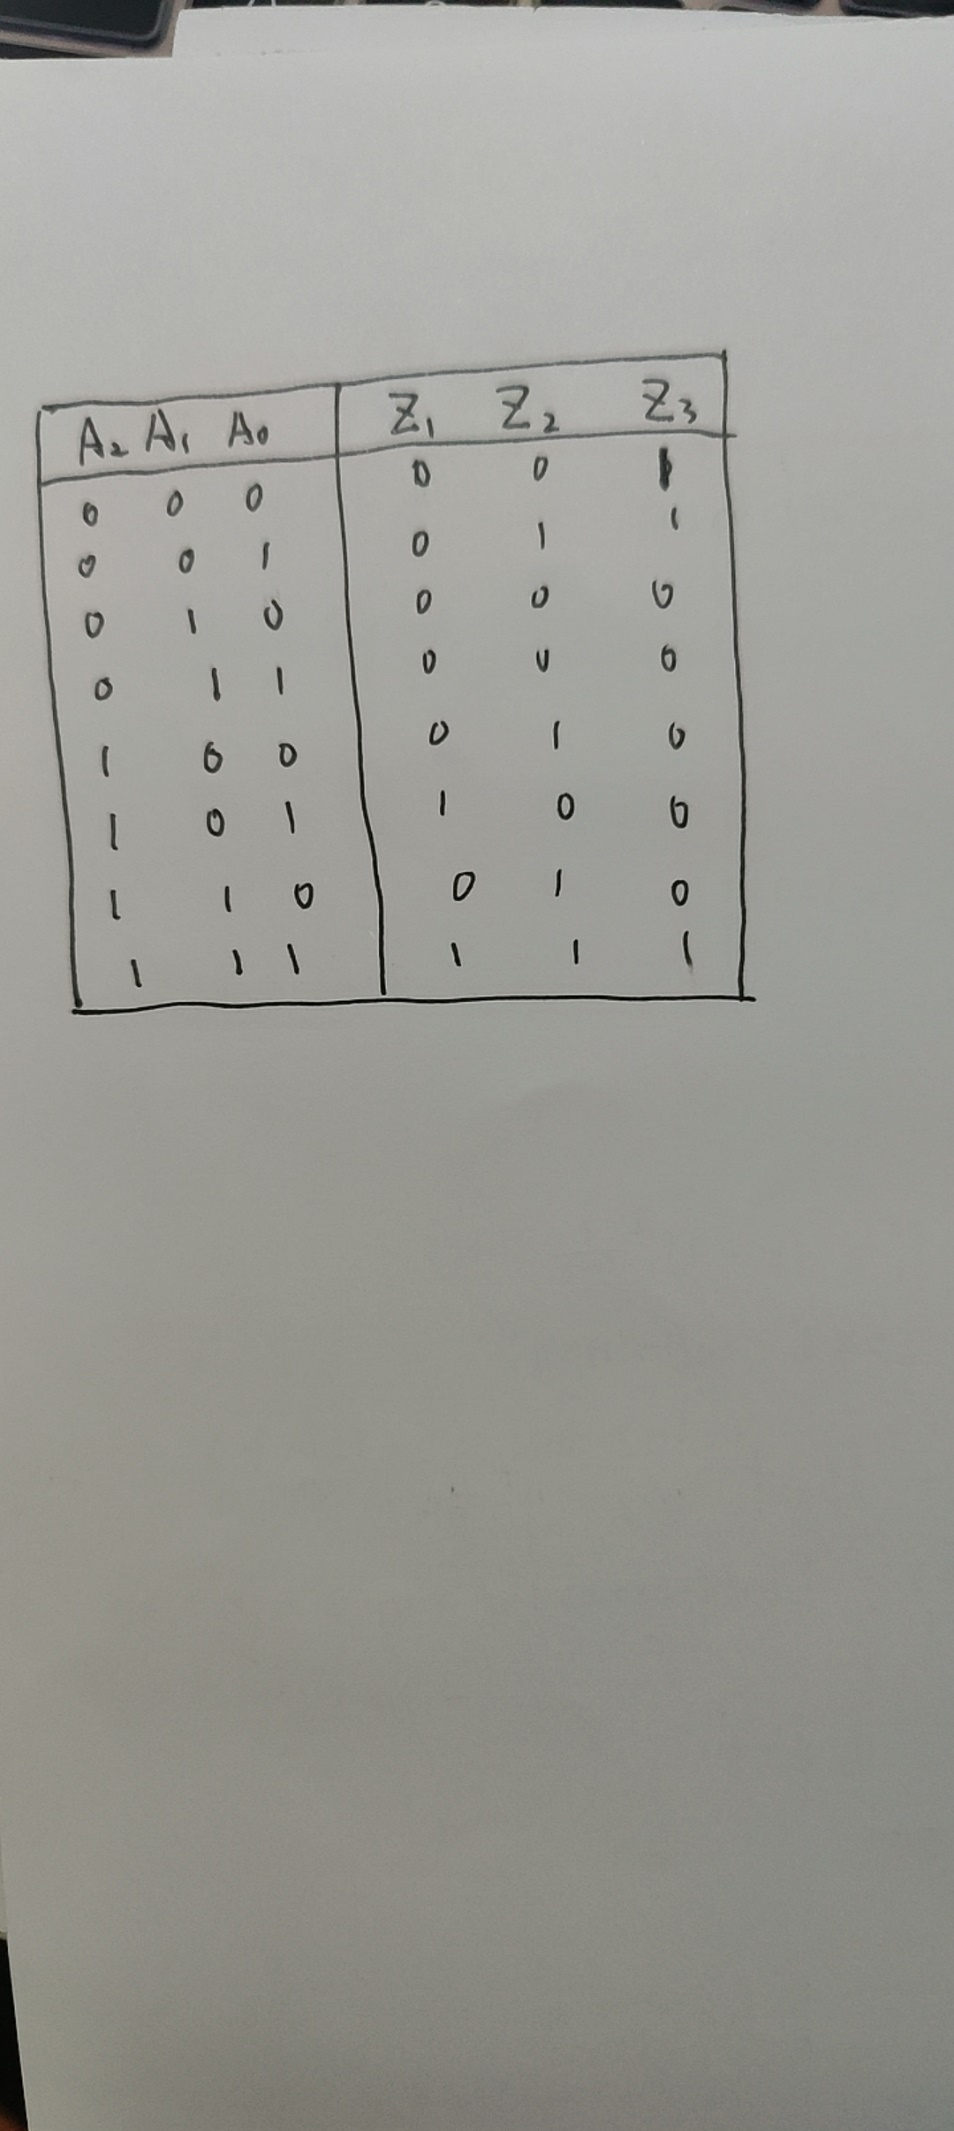 A₂ A₁ A₀ Z₁ Z₂ Z₃
0 0 0 0 0 1
0 0 1 0 1 1
0 1 0 0 0 0
0 1 1 0 0 0
1 0 0 0 1 0
1 0 1 1 0 0
1 1 0 0 1 0
1 1 1 1 1 1